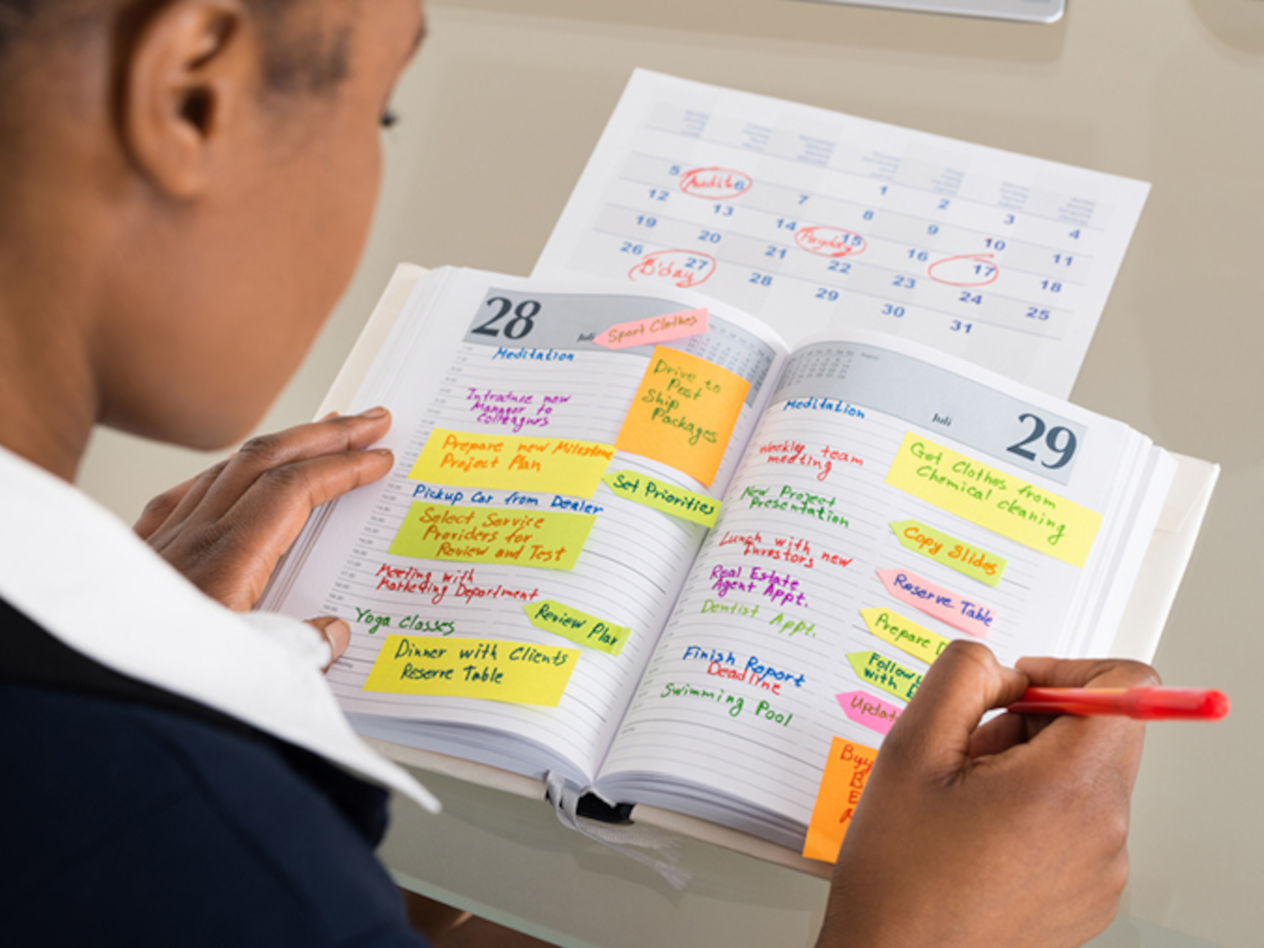 1
2
3
4
5
Audit 6
7
8
9
10
11
12
13
14
Payday 15
16
17
18
19
20
21
22
23
24
25
26
B'day 27
28
29
30
31
28
Juli
Sport Clothes
Meditation
Introduce new
Manager to
Colleagues
Drive to
Post
Ship
Packages
Prepare new Milestone
Project Plan
Set Priorities
Pickup Car from Dealer
Select Service
Providers for
Review and Test
Meeting with
Marketing Department
Review Plan
Yoga Classes
Dinner with Clients
Reserve Table
Juli
29
Meditation
Weekly team
meeting
Get Clothes from
Chemical cleaning
New Project
Presentation
Copy Slides
Lunch with new
Investors
Reserve Table
Real Estate
Agent Appt.
Dentist Appt.
Prepare
Follow
with
Finish Report
Deadline
Swimming Pool